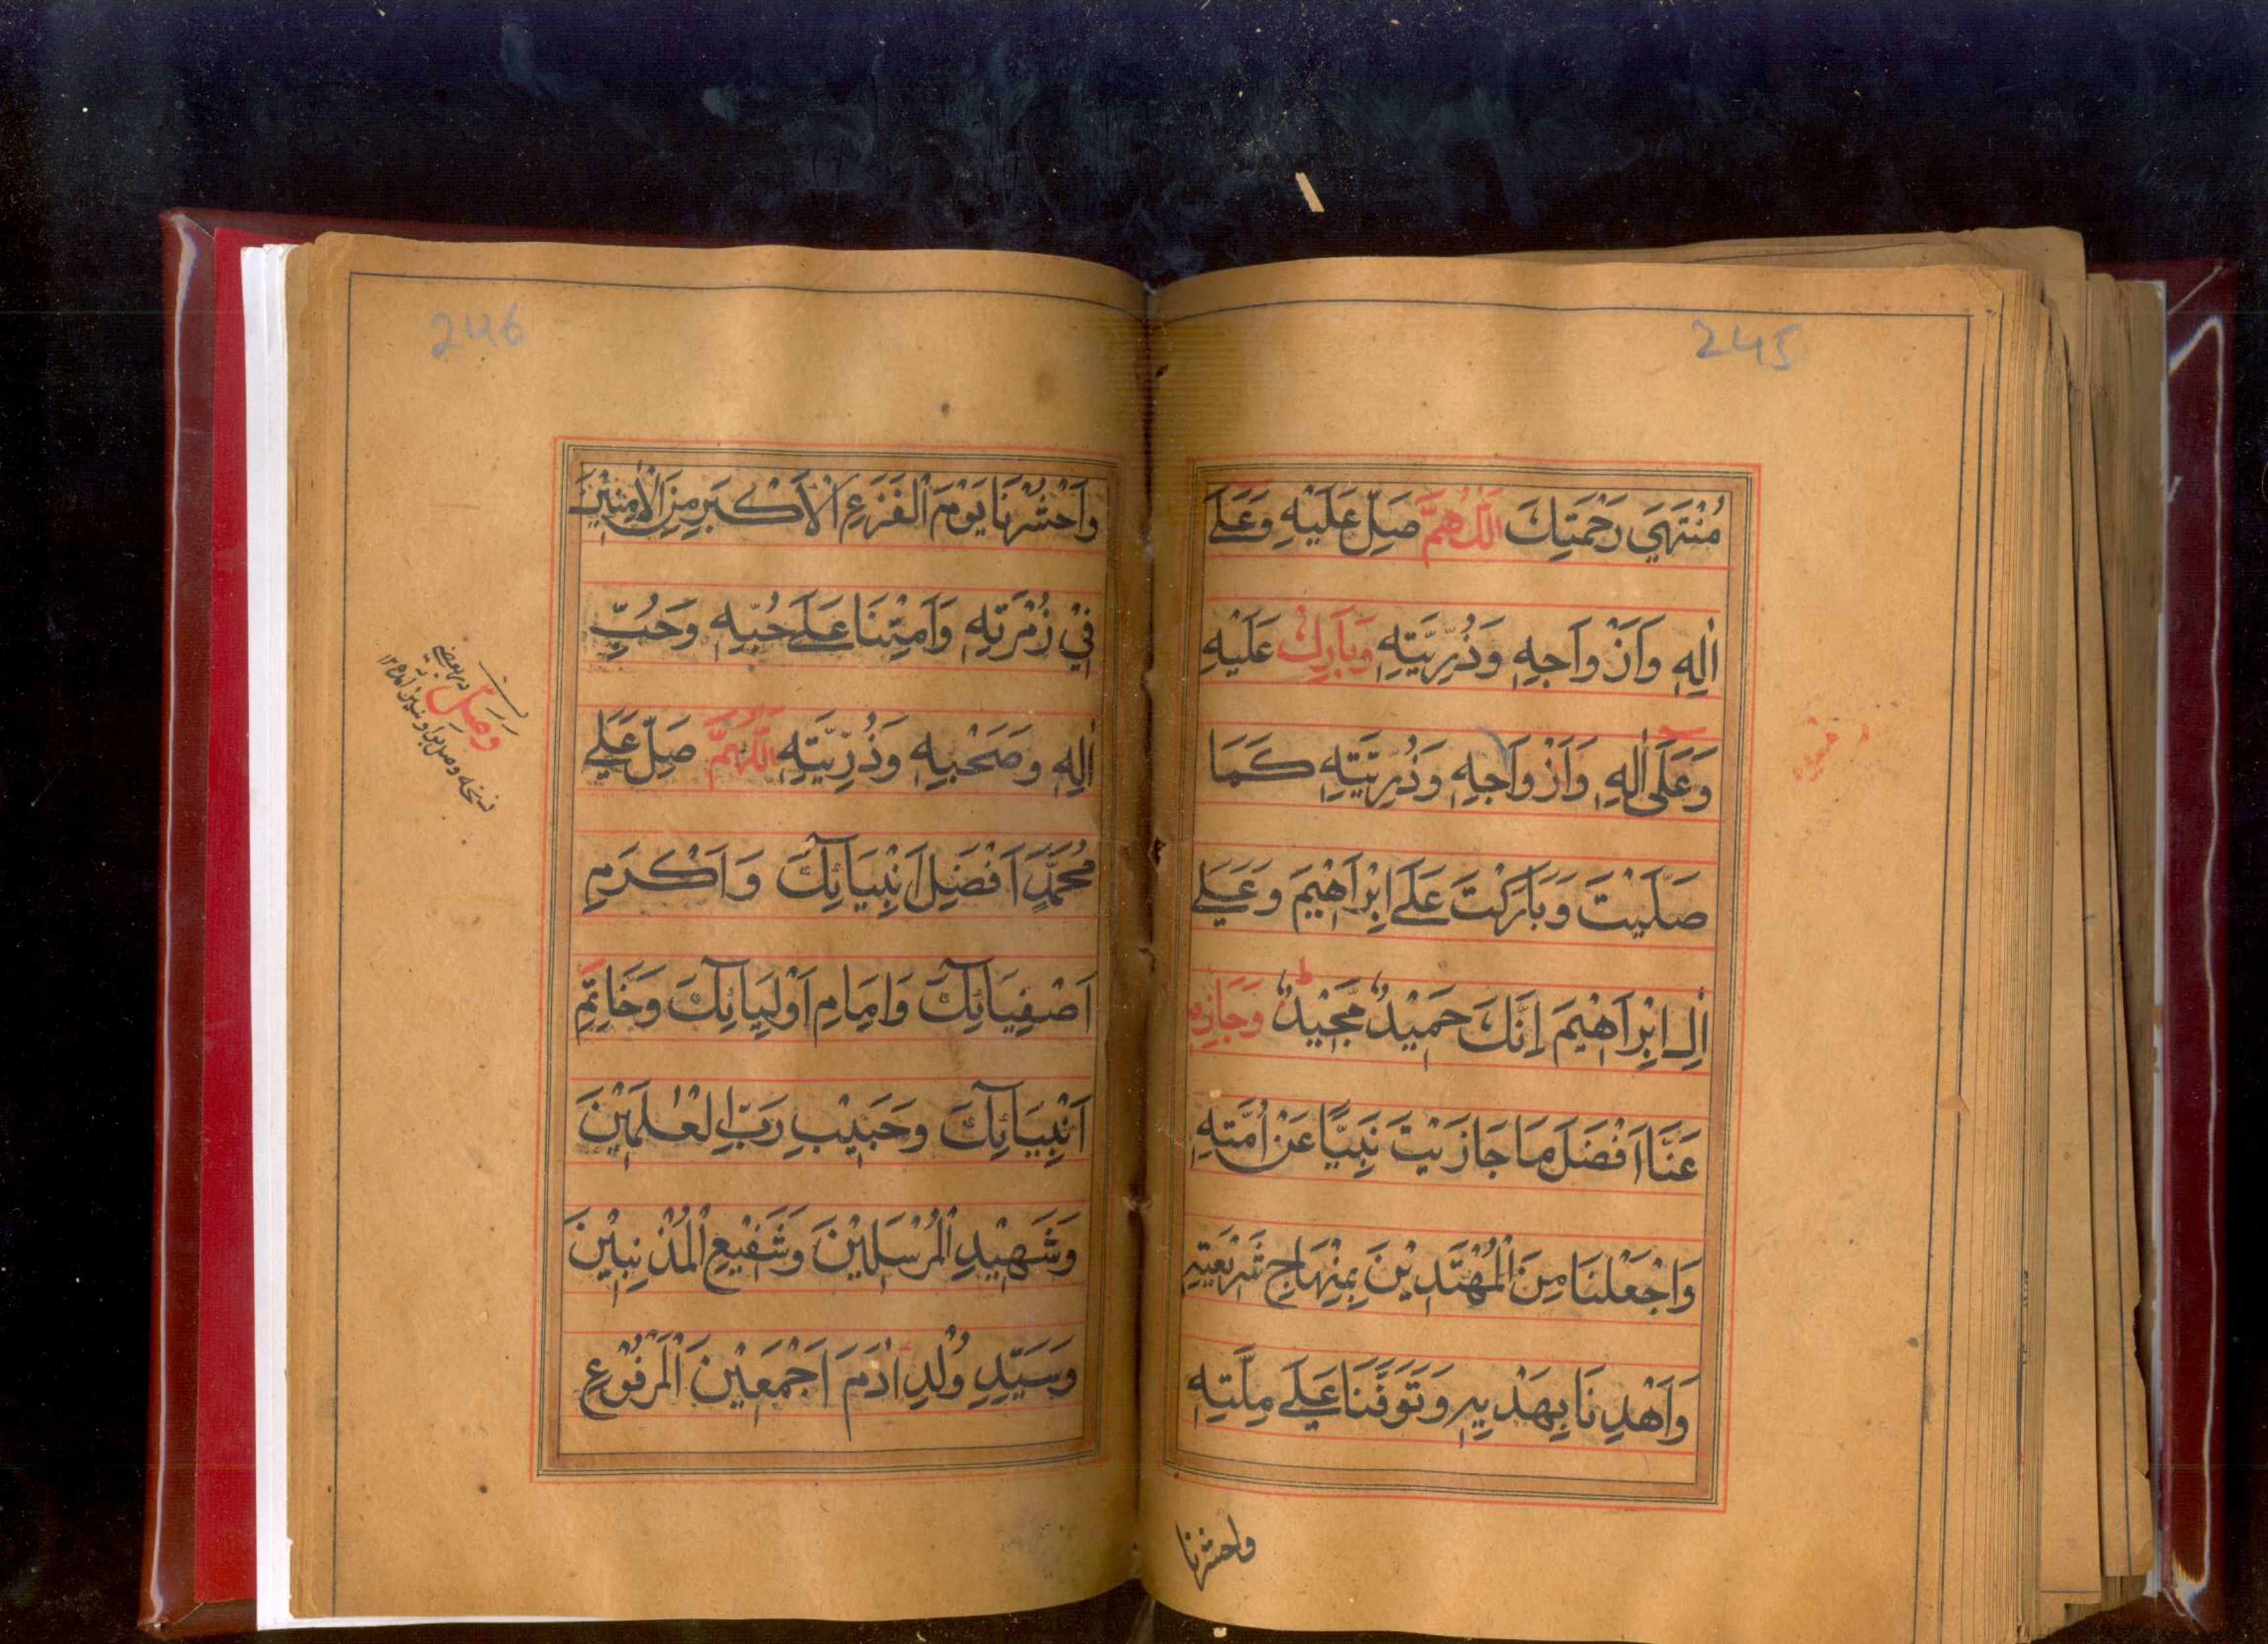 245
مُنْتَهَي رَحْمَتِكَ اَللّٰهُمَّ صَلِّ عَلَيْهِ وَعَلَے
اٰلِهٖ وَاَزْوَاجِهٖ وَذُرِّيَّتِهٖ وَبَارِكْ عَلَيْهِ
وَعَلَى اٰلِهٖ وَاَزْوَاجِهٖ وَذُرِّيَّتِهٖ كَمَا
صَلَّيْتَ وَبَارَكْتَ عَلَے اِبْرَاهِيْمَ وَعَلَے
اٰلِ اِبْرَاهِيْمَ اِنَّكَ حَمِيْدٌ مَّجِيْدٌ ط وَجَازِهٖ
عَنَّا اَفْضَلَ مَا جَازَيْتَ نَبِيًّا عَنْ اُمَّتِهٖ
وَاجْعَلْنَا مِنَ الْمُهْتَدِيْنَ بِمِنْهَاجِ شَرِيْعَتِهٖ
وَاهْدِنَا بِهَدْيِهٖ وَتَوَفَّنَا عَلَے مِلَّتِهٖ
واحشرنا
246
وَاحْشُرْنَا يَوْمَ الْفَزَعِ الْاَكْبَرِ مِنَ الْاٰمِنِيْنَ
فِيْ زُمْرَتِهٖ وَاَمِتْنَا عَلَے حُبِّهٖ وَحُبِّ
اٰلِهٖ وَصَحْبِهٖ وَذُرِّيَّتِهٖ اَللّٰهُمَّ صَلِّ عَلَے
مُحَمَّدٍ اَفْضَلِ اَنْبِيَائِكَ وَاَكْرَمِ
اَصْفِيَائِكَ وَاِمَامِ اَوْلِيَائِكَ وَخَاتِمِ
اَنْبِيَائِكَ وَحَبِيْبِ رَبِّ الْعٰلَمِيْنَ
وَشَهِيْدِ الْمُرْسَلِيْنَ وَشَفِيْعِ الْمُذْنِبِيْنَ
وَسَيِّدِ وُلْدِ اٰدَمَ اَجْمَعِيْنَ الْمَرْفُوْعِ